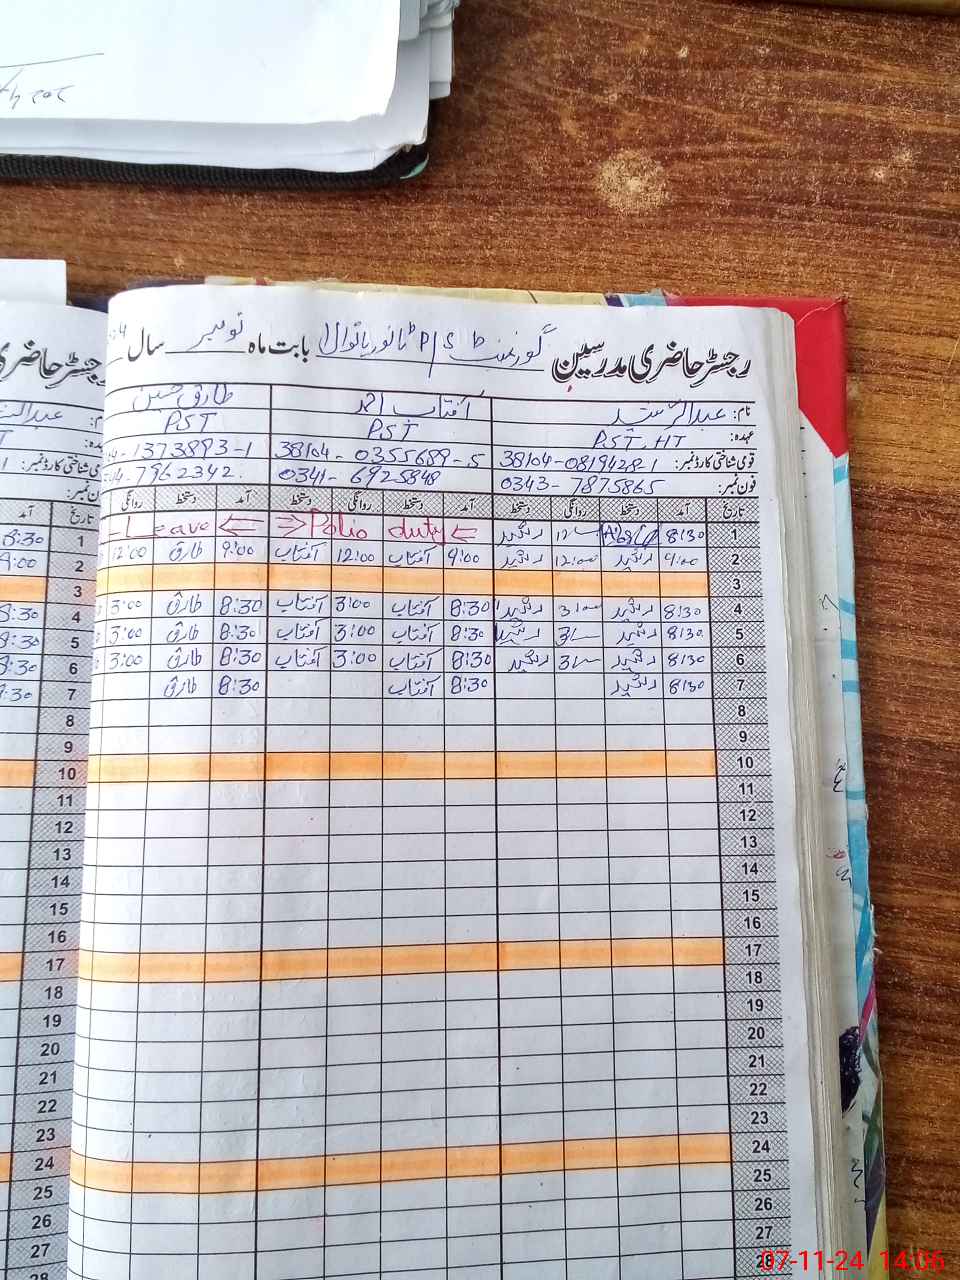 رجسٹر حاضری مدرسین گورنمنٹ P/S بابت ماہ نومبر سال
نام: عبدالرشید آفتاب احمد طارق حسین
عہدہ: PST, HT PST PST
قومی شناختی کارڈ نمبر: 38104-0355689-5 1373893-1
فون نمبر: 0343-7875865 0341-6925848 7962342
تاریخ آمد دستخط روانگی دستخط آمد دستخط روانگی دستخط آمد دستخط روانگی
1 8:30 رشید Polio duty Leave
2 9:00 رشید 12:00 رشید 9:00 آفتاب 12:00 آفتاب 9:00 طارق 12:00
3
4 8:30 رشید 3:00 رشید 8:30 آفتاب 3:00 آفتاب 8:30 طارق 3:00
5 8:30 رشید 3 رشید 8:30 آفتاب 3:00 آفتاب 8:30 طارق 3:00
6 8:30 رشید 3 رشید 8:30 آفتاب 3:00 آفتاب 8:30 طارق 3:00
7 8:30 رشید 8:30 آفتاب 8:30 طارق
8
9
10
11
12
13
14
15
16
17
18
19
20
21
22
23
24
25
26
27
28
رجسٹر حاضری
تاریخ آمد
1 8:30
2 9:00
3
4 8:30
5 8:30
6 8:30
7 8:30
8
9
10
11
12
13
14
15
16
17
18
19
20
21
22
23
24
25
26
27
28
07-11-24 14:06